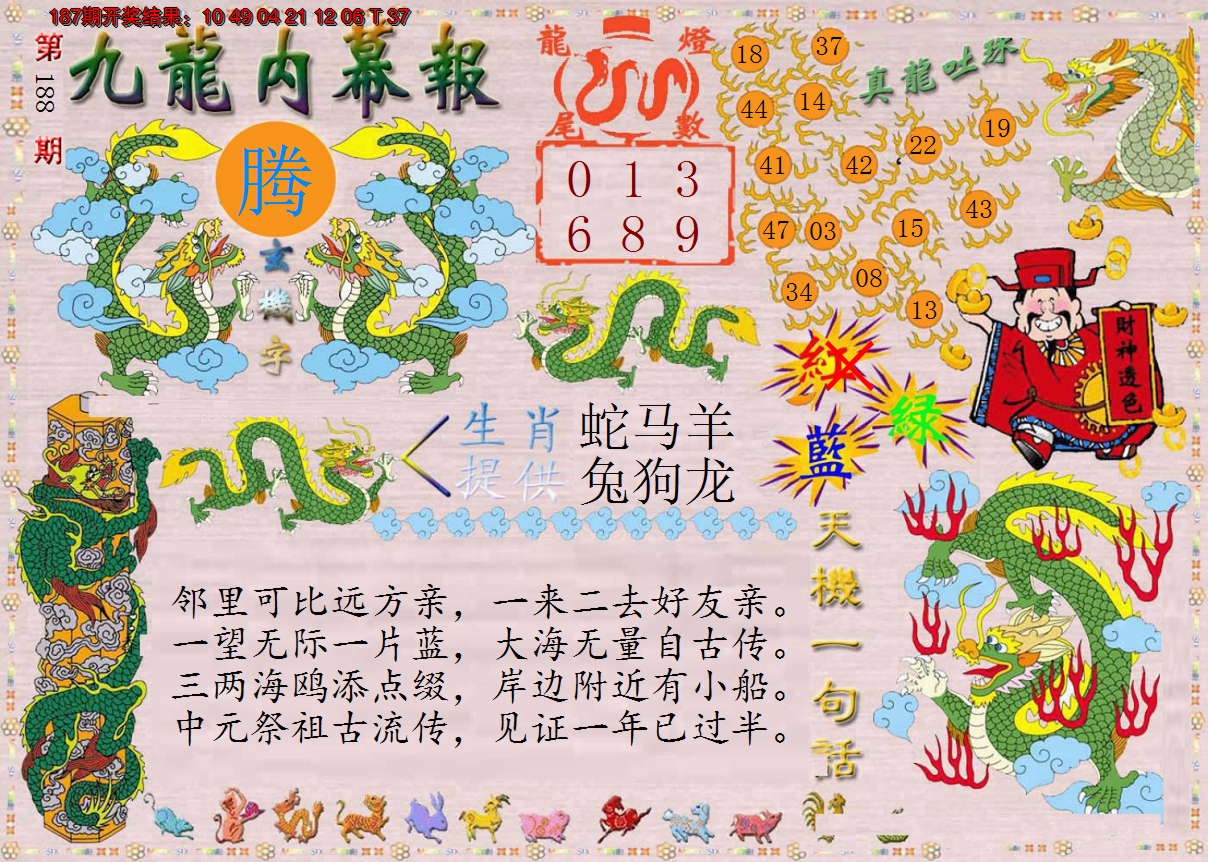 187期开奖结果：10 49 04 21 12 06 T 37
第188期
九龍内幕報
腾
玄機字
龍燈尾數
0 1 3
6 8 9
真龍吐珠
18
37
44
14
19
22
41
42
43
47
03
15
34
08
13
紅
绿
藍
財神透色
生肖提供
蛇马羊
兔狗龙
天機一句話
邻里可比远方亲，一来二去好友亲。
一望无际一片蓝，大海无量自古传。
三两海鸥添点缀，岸边附近有小船。
中元祭祖古流传，见证一年已过半。